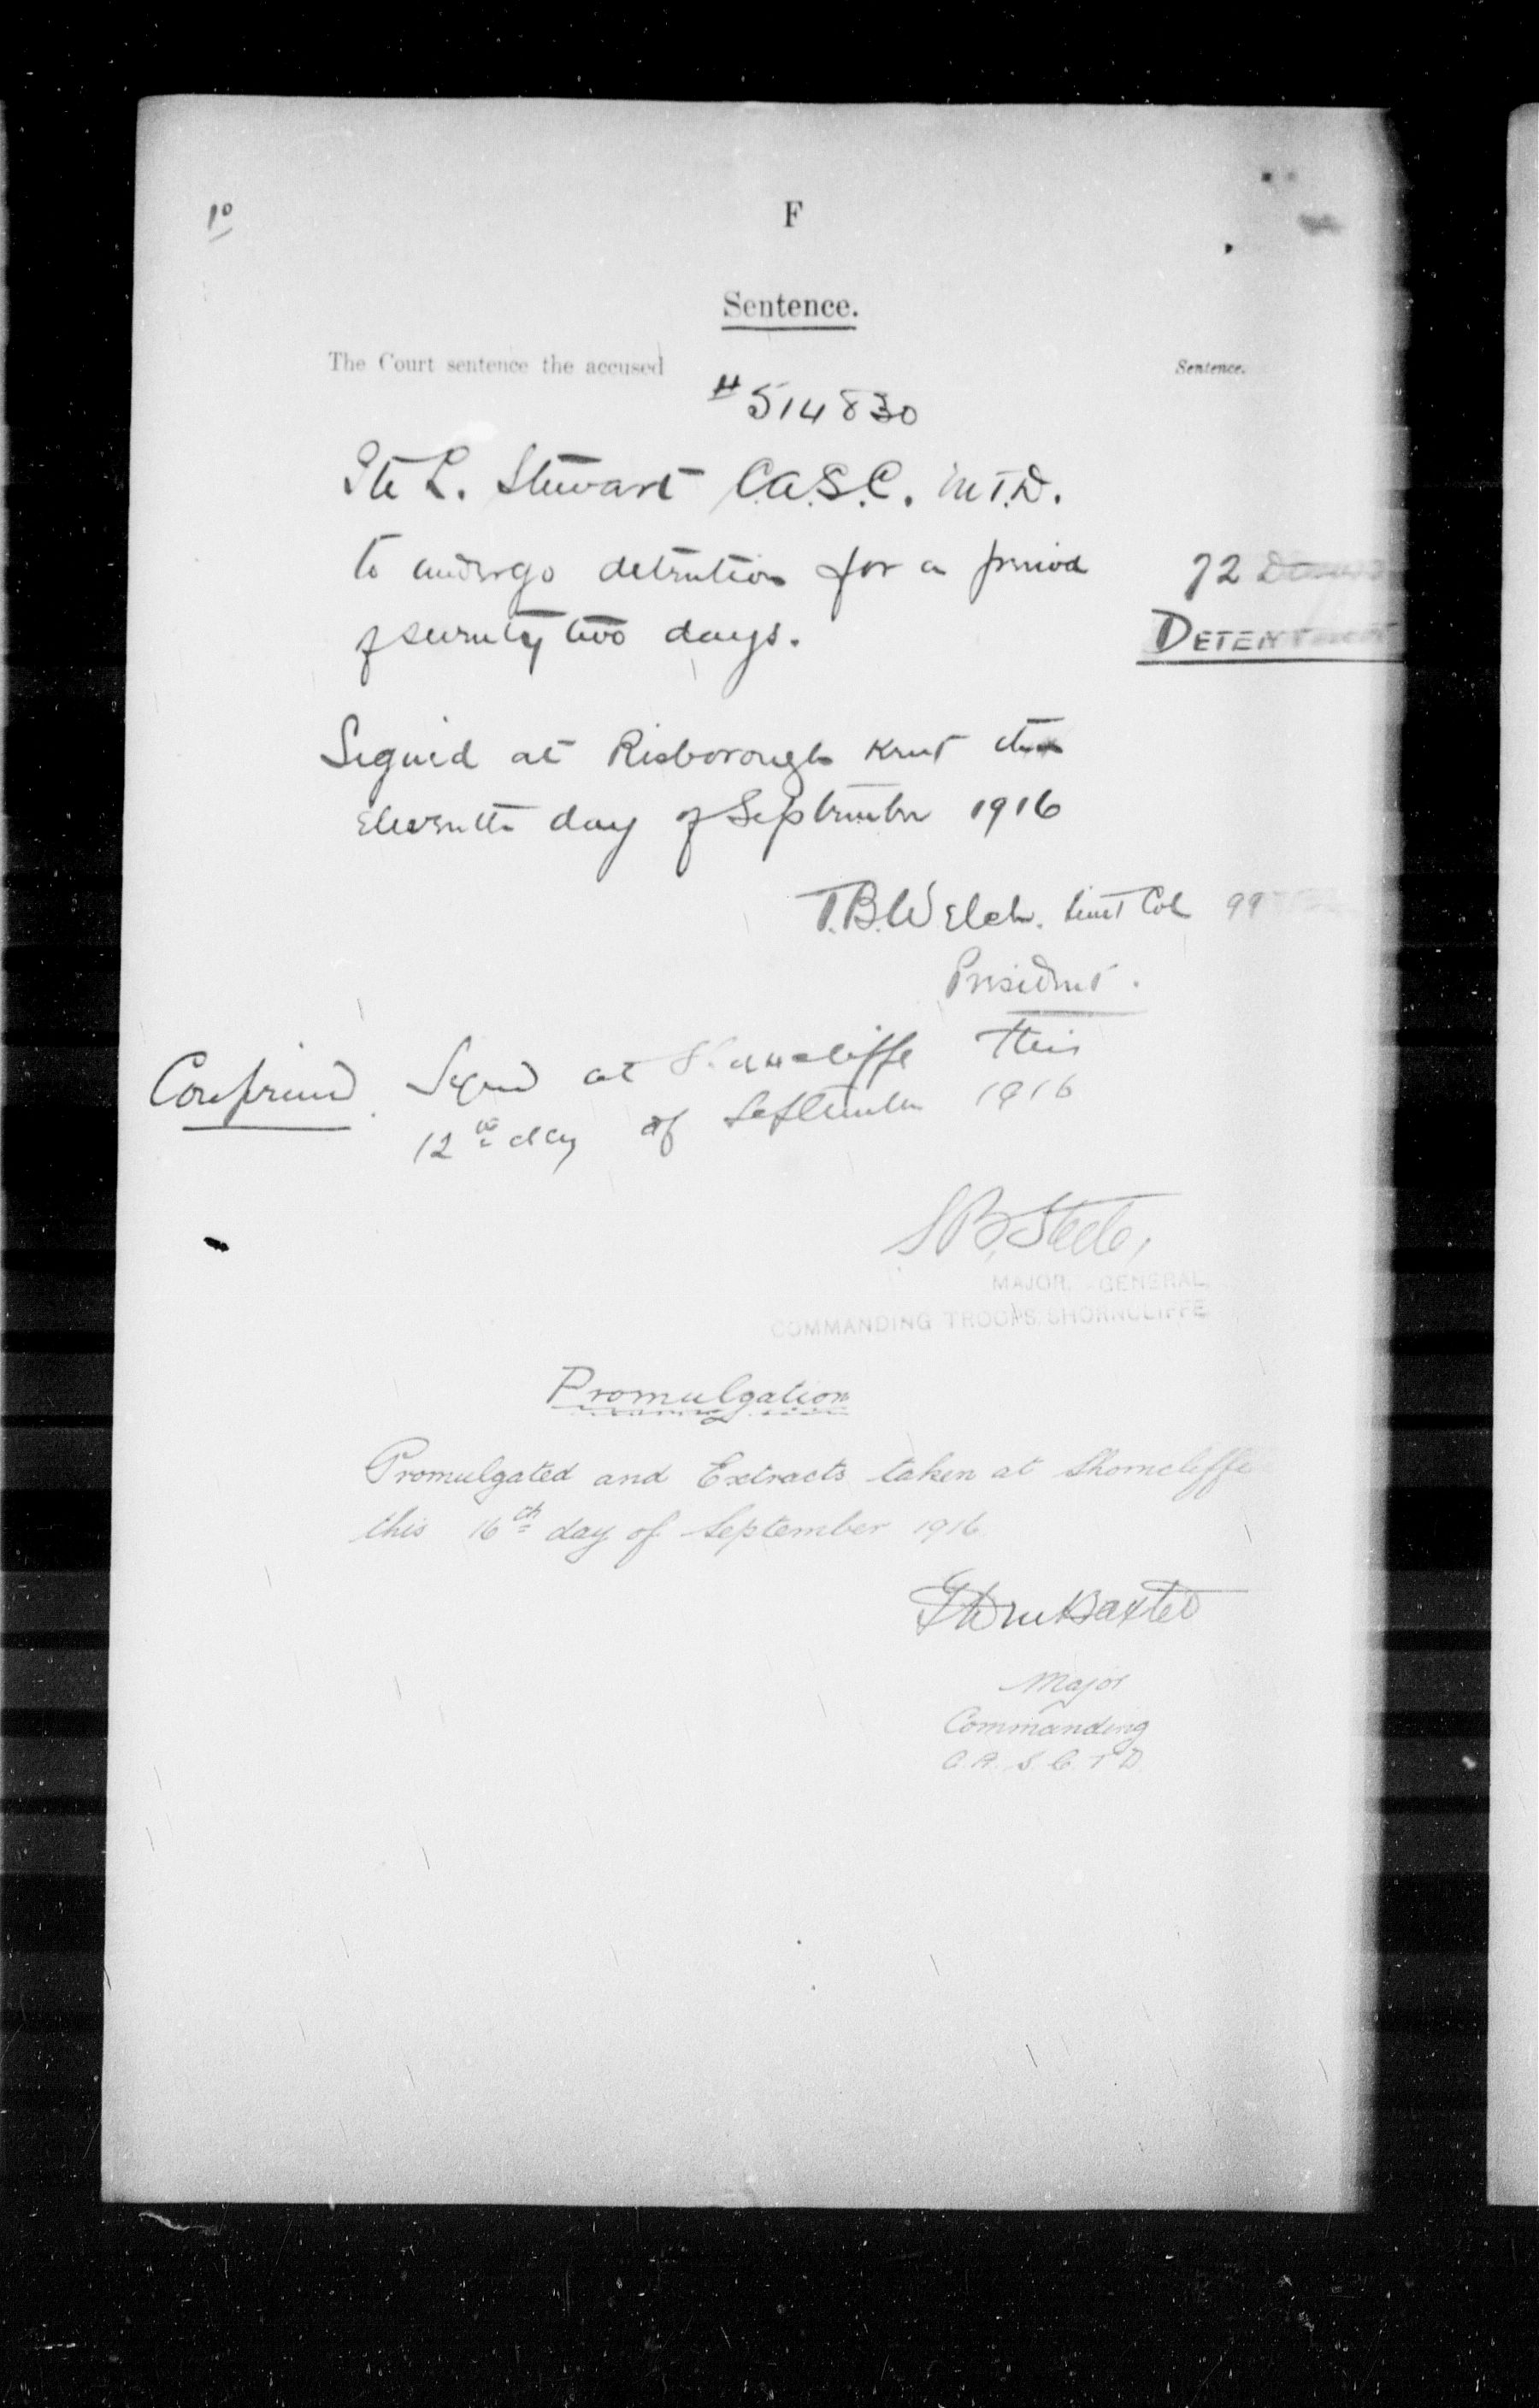 10
F
Sentence.
The Court sentence the accused
Sentence.
#514830
Pte L. Stewart C.A.S.C. M.T.D.
to undergo detention for a period
of seventy two days.
72 Days
DETENTION
Signed at Risborough Kent this
eleventh day of September 1916
T.B. Welch. Lieut Col 99
President.
Confirmed. Signed at Shorncliffe this
12th day of September 1916
S B Steele,
MAJOR. GENERAL,
COMMANDING TROOPS, SHORNCLIFFE
Promulgation
Promulgated and Extracts taken at Shorncliffe
this 16th day of September 1916
Baxter
Major
Commanding
C.A.S.C.T.D.